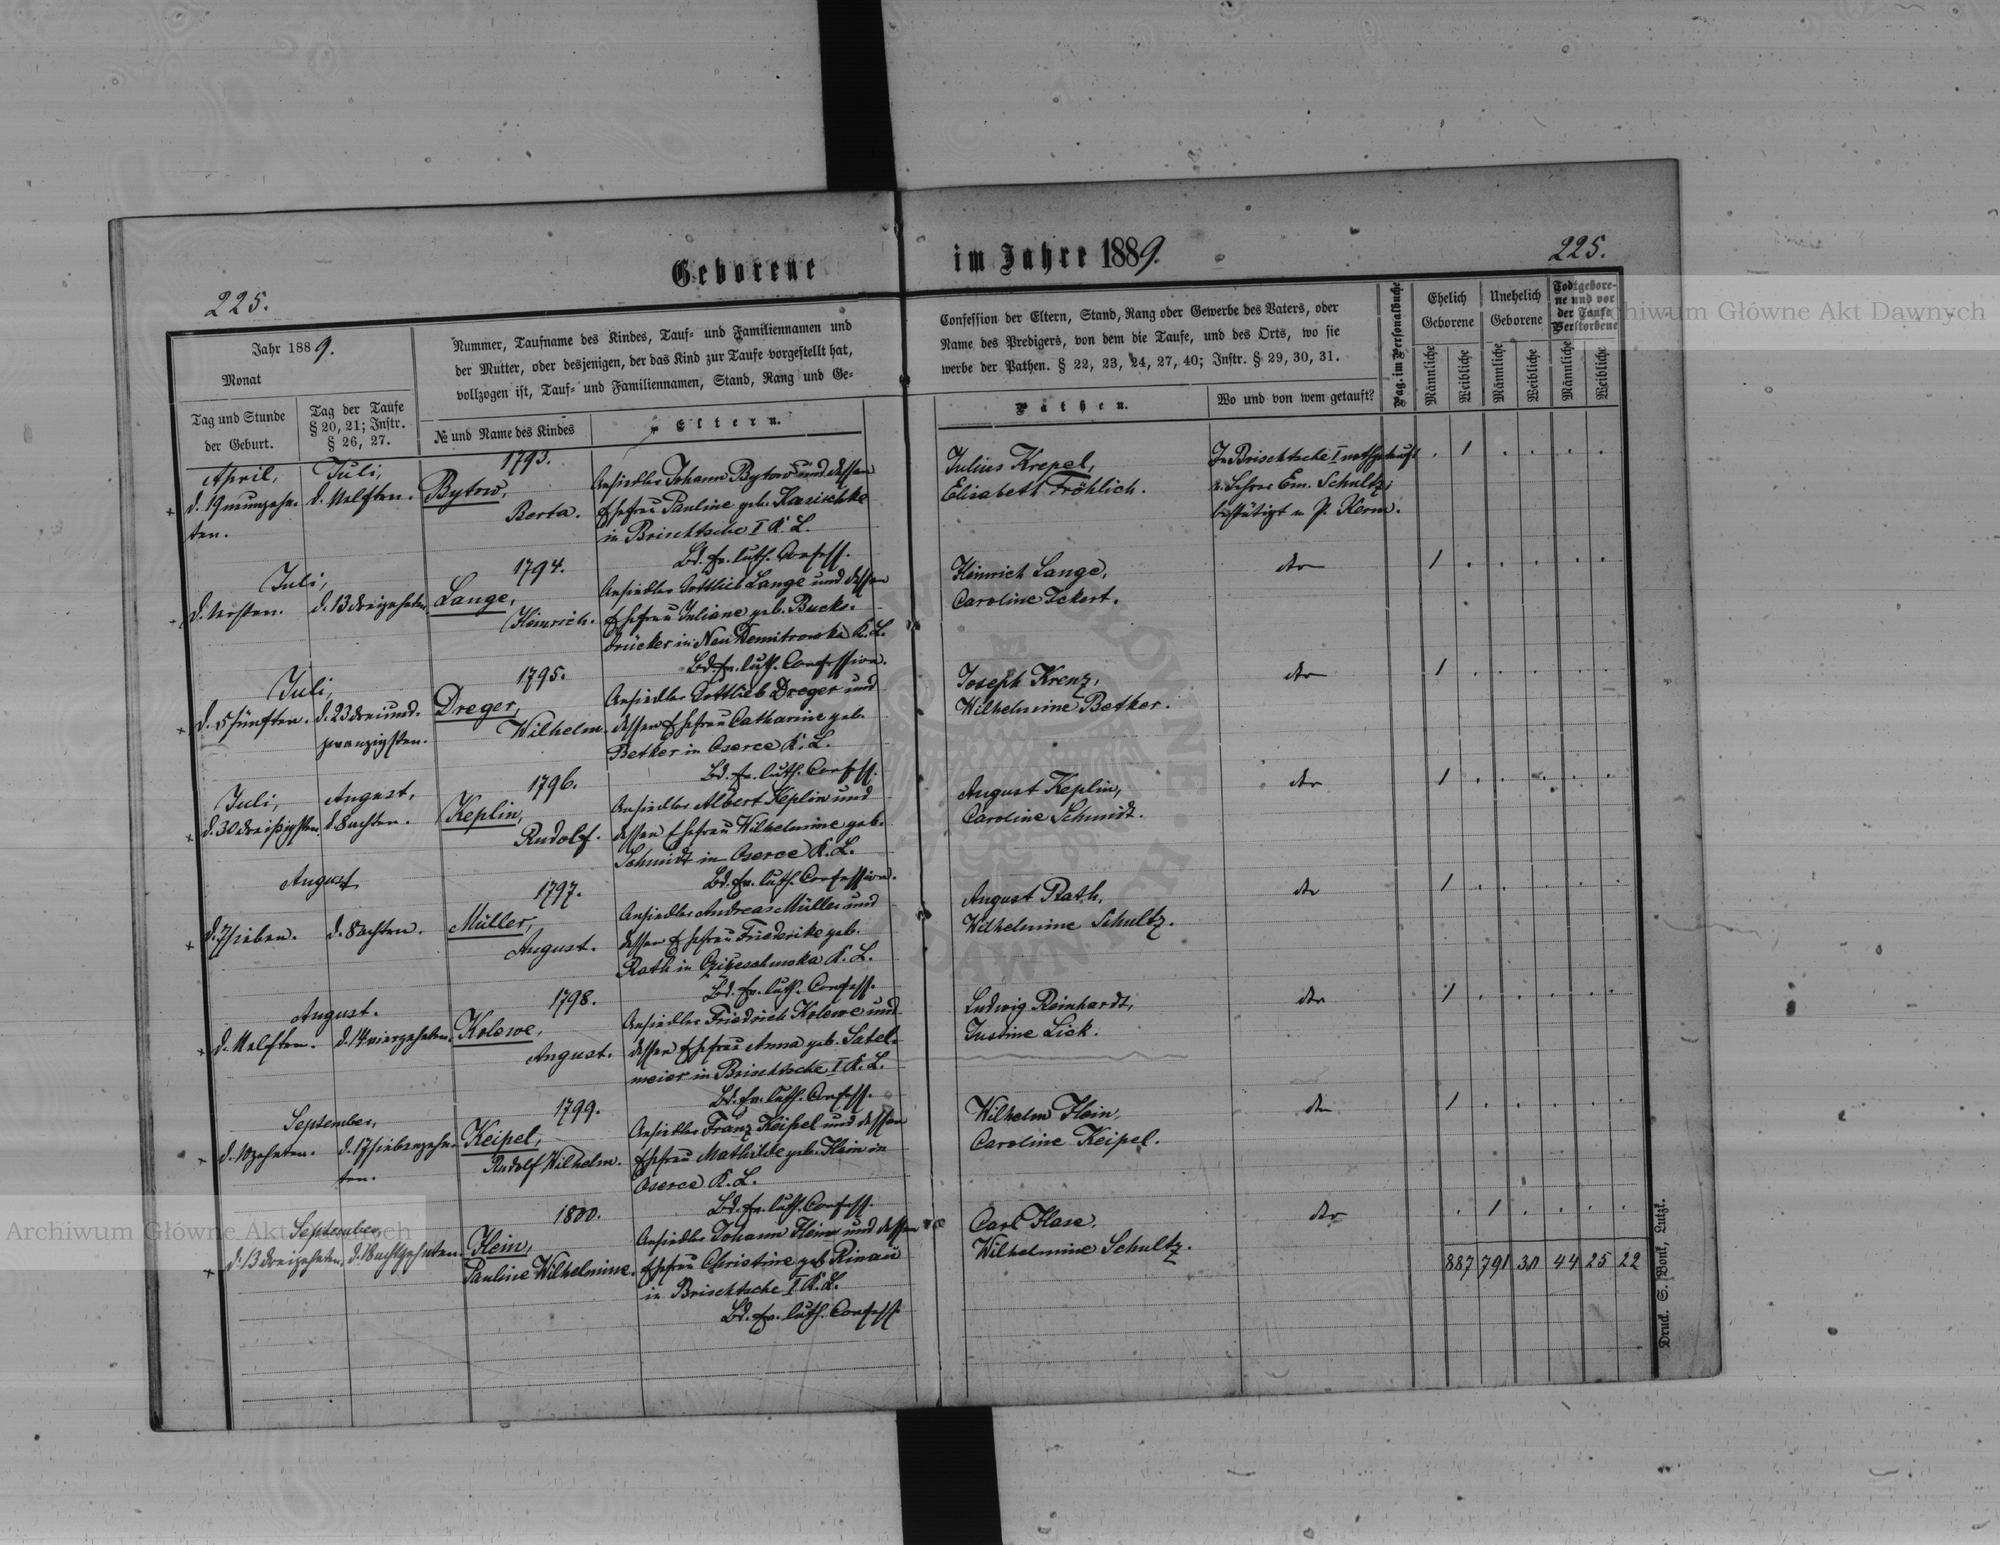 Geborene im Jahre 1889.
225.
225.
Jahr 1889.
Monat
Tag und Stunde der Geburt.
Tag der Taufe § 20, 21; Instr. § 26, 27.
Nummer, Taufname des Kindes, Tauf= und Familiennamen und
der Mutter, oder desjenigen, der das Kind zur Taufe vorgestellt hat,
vollzogen ist, Tauf= und Familiennamen, Stand, Rang und Ge=
№ und Name des Kindes
Eltern.
Confession der Eltern, Stand, Rang oder Gewerbe des Vaters, oder
Name des Predigers, von dem die Taufe, und des Orts, wo sie
werbe der Pathen. § 22, 23, 24, 27, 40; Instr. § 29, 30, 31.
Pathen.
Wo und von wem getauft?
Pag. im Personalbuche
Ehelich Geborene
Unehelich Geborene
Todtgeborene und vor der Taufe Verstorbene
Männliche
Weibliche
Männliche
Weibliche
Männliche
Weibliche
April, Juli, 1793.
d. 19 neunzehn-ten.
d. 11 elften.
Bytow,
Berta.
Ansiedler Johann Bytow und dessen
Ehefrau Pauline geb. Karischke
in Brischtsche I K. L.
Bd. ev. luth. Confess.
Julius Krepel,
Elisabeth Fröhlich.
In Brischtsche I nothgetauft
v. Lehrer Em. Schultz;
bestätigt v. P. Kerm.
Juli, 1794.
d. 1 ersten.
d. 13 dreizehnten.
Lange,
Heinrich.
Ansiedler Gottlieb Lange und dessen
Ehefrau Juliane geb. Bucks-
drücker in Neu Demitrowka K. L.
Bd. ev. luth. Confession.
Heinrich Lange,
Caroline Eckert.
dto
Juli, 1795.
d. 5 fünften.
d. 23 dreiund-
zwanzigsten.
Dreger,
Wilhelm.
Ansiedler Gottlieb Dreger und
dessen Ehefrau Catharine geb.
Betker in Oserce K. L.
Bd. ev. luth. Confess.
Joseph Krenz,
Wilhelmine Betker.
dto
Juli, August, 1796.
d. 30 dreißigsten.
d. 8 achten.
Keplin,
Rudolf.
Ansiedler Albert Keplin und
dessen Ehefrau Wilhelmine geb.
Schmidt in Oserce K. L.
Bd. ev. luth. Confession.
August Keplin,
Caroline Schmidt.
dto
August 1797.
d. 7 sieben.
d. 8 achten.
Müller,
August.
Ansiedler Andreas Müller und
dessen Ehefrau Friederike geb.
Rath in K. L.
Bd. ev. luth. Confess.
August Rath,
Wilhelmine Schultz.
dto
August. 1798.
d. 11 elften.
d. 14 vierzehnten.
Kolewe,
August.
Ansiedler Friedrich Kolewe und
dessen Ehefrau Anna geb. Satel-
meier in Brischtsche I K. L.
Bd. ev. luth. Confess.
Ludwig Reinhardt,
Justine Lick.
dto
September, 1799.
d. 10 zehnten.
d. 17 siebenzehn-
ten.
Keipel,
Rudolf Wilhelm.
Ansiedler Franz Keipel und dessen
Ehefrau Mathilde geb. Hein in
Oserce K. L.
Bd. ev. luth. Confess.
Wilhelm Hein,
Caroline Keipel.
dto
September, 1800.
d. 13 dreizehnten.
d. 18 achtzehnten.
Hein,
Pauline Wilhelmine.
Ansiedler Johann Hein und dessen
Ehefrau Christine geb. Rinau
in Brischtsche I K. L.
Bd. ev. luth. Confess.
Carl Hase,
Wilhelmine Schultz.
dto
887 791 31 44 25 22
Druck. S. Bonk, Lutzk.
Archiwum Główne Akt Dawnych
Archiwum Główne Akt Dawnych